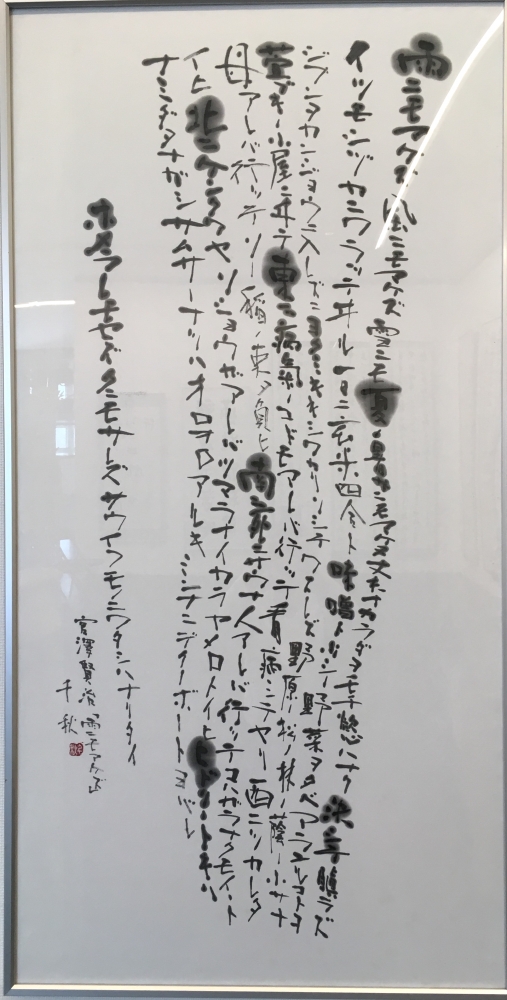 雨ニモマケズ風ニモマケズ雪ニモ夏ノ暑サニモマケヌ丈夫ナカラダヲモチ慾ハナク決シテ瞋ラズ
イツモシヅカニワラッテヰル一日ニ玄米四合ト味噌ト少シノ野菜ヲタベアラユルコトヲ
ジブンヲカンジョウニ入レズニヨクミキキシワカリソシテワスレズ野原ノ松ノ林ノ蔭ノ小サナ
萱ブキノ小屋ニヰテ東ニ病氣ノコドモアレバ行ッテ看病シテヤリ西ニツカレタ
母アレバ行ッテソノ稲ノ束ヲ負ヒ南ニ死ニサウナ人アレバ行ッテコハガラナクテモイヽト
イヒ北ニケンクヮヤソショウガアレバツマラナイカラヤメロトイヒヒドリノトキハ
ナミダヲナガシサムサノナツハオロオロアルキミンナニデクノボートヨバレ
ホメラレモセズクニモサレズサウイフモノニワタシハナリタイ
宮澤賢治 雨ニモマケズより
千秋